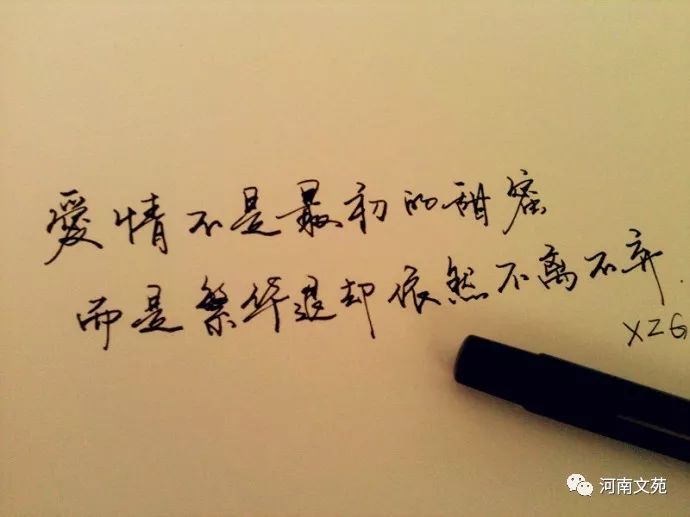 愛情不是最初的甜蜜
而是繁华退却依然不离不弃.
XZG
河南文苑